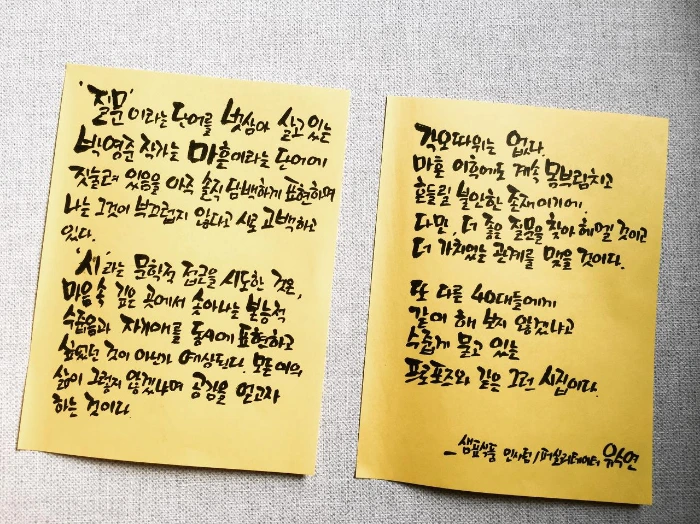 '질문'이라는 단어를 벗삼아 살고 있는
박영준 작가는 마흔이라는 단어에
짓눌려 있음을 아주 솔직 담백하게 표현하며
나는 그것이 부끄럽지 않다고 시로 고백하고
있다.
'시'라는 문학적 접근을 시도한 것은,
마음 속 깊은 곳에서 솟아나는 본능적
수줍음과 자기애를 동시에 표현하고
싶었던 것이 아닌가 예상된다. 모든 이의
삶이 그렇지 않겠냐며 공감을 얻고자
하는 것이다.
각오 따위는 없다.
마흔 이후에도 계속 몸부림치고
흔들릴 불안한 존재이기에.
다만, 더 좋은 질문을 찾아 헤멜 것이고
더 가치있는 관계를 맺을 것이다.
또 다른 40대들에게
같이 해 보지 않겠냐고
수줍게 묻고 있는
프로포즈와 같은 그런 시집이다.
- 샘표식품 인사팀/퍼실리테이터